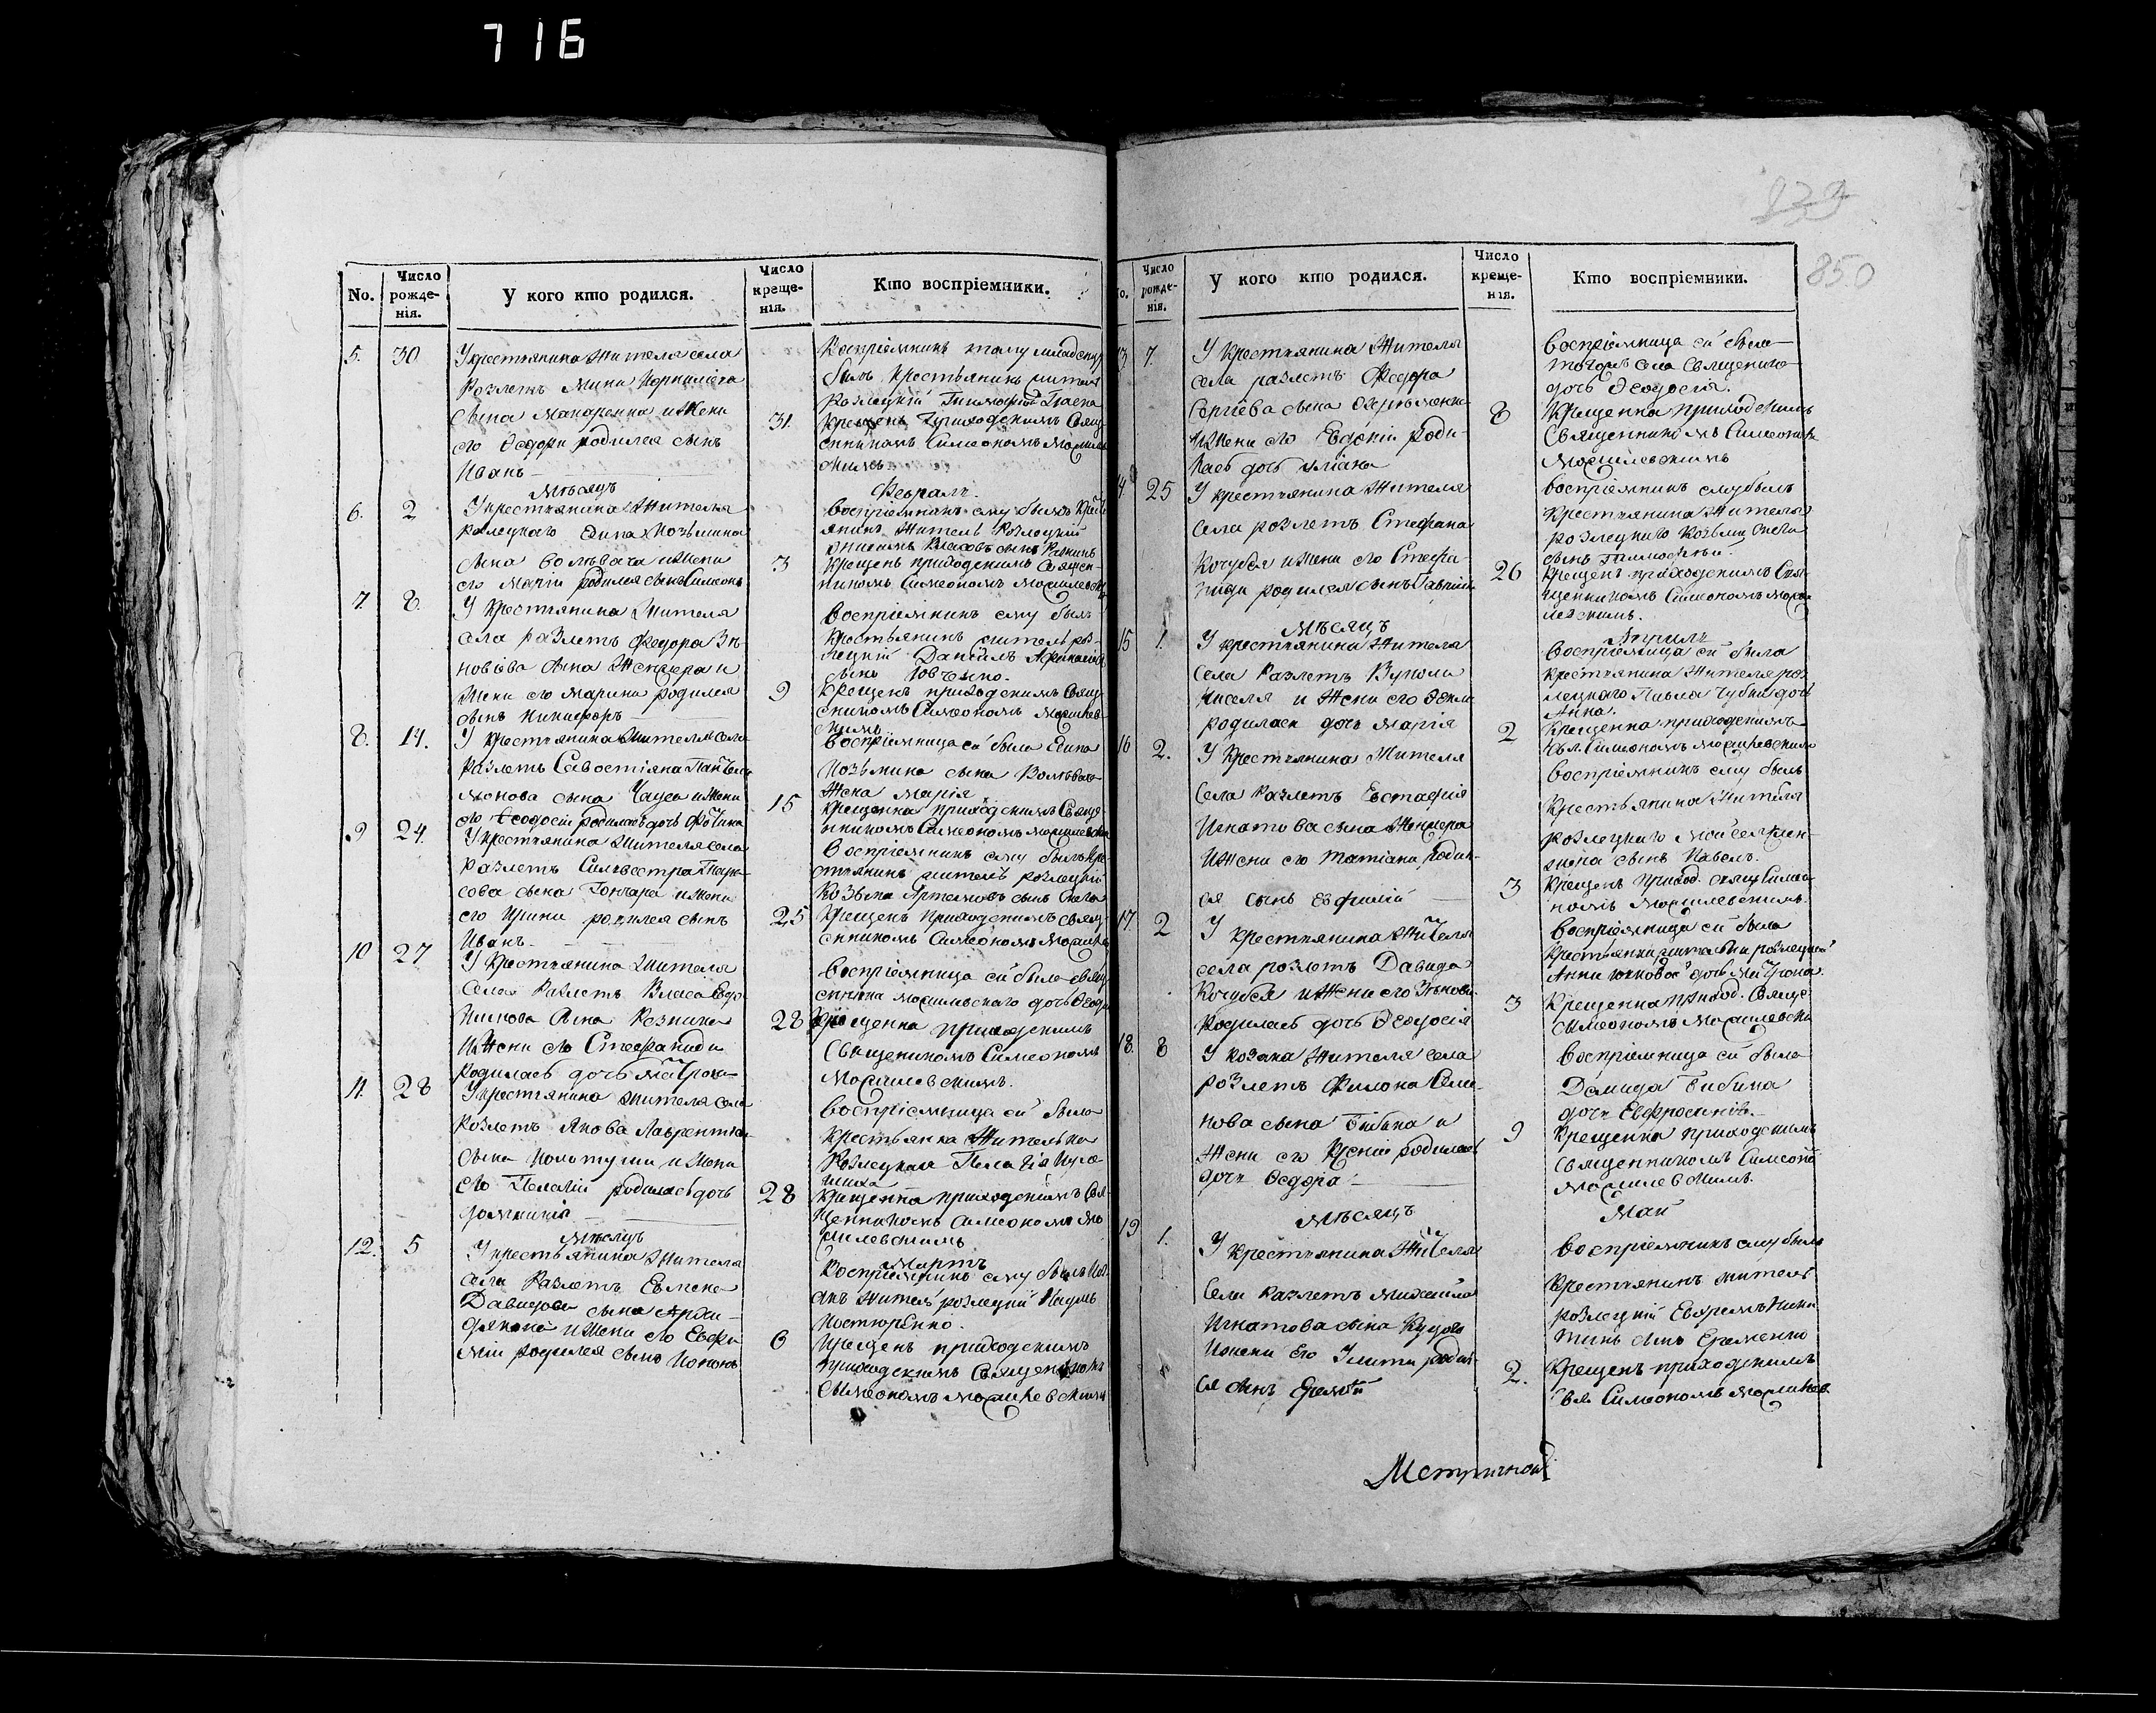 716
839
850
No.
Число рожде-нія.
У кого кто родился.
Число креще-нія.
Кто воспріемники.
5. 30
У крестьянина жителя села
Розлетъ Мины Корнилiева
сына Макаренка и жены
его Ѳеодоры родился сынъ
Иванъ
Воспріемникъ тому младенцу
былъ крестьянинъ житель
розлецкій Тимофей
31. Крещенъ приходскимъ Свящ-
енникомъ Симеономъ Могилев-
скимъ
Мѣсяцъ Февраль.
6. 2
У крестьянина жителя
розлецкаго Козьмина
сына и жены
его Маріи родился сынъ Симеонъ
Воспріемникъ ему былъ крест-
янинъ житель Розлецкій
Власовъ сынъ
3 Крещенъ приходскимъ Священ-
никомъ Симеономъ Могилевски
7. 8.
У крестьянина жителя
села Разлетъ Федора Зѣ-
новіева сына Женжера и
жены его Марины родился
сынъ Никифоръ
Воспріемникъ ему былъ
крестьянинъ житель роз-
лецкій Даніилъ Афанасіевъ
сынъ Вовченко.
9 Крещенъ приходскимъ Свящ-
енникомъ Симеономъ Могилев-
скимъ
8. 14.
У крестьянина жителя села
Разлетъ Савостіяна Пантеле-
монова сына Чауса и жены
его Ѳеодосіи родилась дочь Фотина
Воспріемница ей была
Козьмина сына
жена Марія
15 Крещенна приходскимъ Свяще-
нникомъ Симеономъ Могилевски
9 24.
У крестьянина жителя села
Разлетъ Сильвестра
сова сына Гончара и жены
его Ирины родился сынъ
Иванъ.
Воспріемникъ ему былъ кре-
стянинъ житель розлецкій
Козьма Артемовъ сынъ
25 Крещенъ приходскимъ Свящ-
енникомъ Симеономъ Могилев
10 27
У крестьянина жителя
села Разлетъ Власа Евдо-
кимова сына Резника
и жены его Стефаниды
родилась дочь Матрона
Воспріемница ей была свящ-
енника Могилевскаго дочь Ѳеодо
28 Крещенна приходскимъ
Священикомъ Симеономъ
Могилевскимъ.
11. 28
У крестьянина жителя села
Розлетъ Якова Лаврентіев
сына Колотуши и жены
его Пелагіи родилась дочь
Домникія
Воспріемница ей была
крестьянка жителька
Розлецкая Пелагія
28 Крещенна приходскимъ Свя-
щенникомъ Симеономъ Мо
гилевскимъ
Мѣсяцъ Мартъ
12. 5
У крестьянина жителя
села Разлетъ
Давидова сына
и жены его Евфи
міи родился сынъ Кононъ
Воспріемникъ ему былъ коз-
акъ житель розлецкій Наумъ
Костюренко.
6 Крещенъ приходскимъ
приходскимъ Священникомъ
Симеономъ Могилевскимъ
No.
Число рожде-нія.
У кого кто родился.
Число креще-нія.
Кто воспріемники.
13 7.
У крестьянина жителя
села разлетъ Федора
Сергіева сына
и жены его Евдокіи роди-
лась дочь Уліана
Воспріемница ей была
тогожъ села священика
дочь Ѳеодосія.
8 Крещенна приходскимъ
Священникомъ Симеономъ
Могилевскимъ
14. 25
У крестьянина жителя
села розлетъ Стефана
Кочубея и жены его Стефа
ниды родился сынъ Гавріилъ
Воспріемникъ ему былъ
крестьянина жителя
розлецкаго Козьмы
сынъ Тимофей.
26 Крещенъ приходскимъ Свя-
щенникомъ Симеономъ Моги-
левскимъ.
Мѣсяцъ Априль
15 1.
У крестьянина жителя
села Разлетъ Вукола
Киселя и жены его Ѳеклы
родилась дочь Марія
Воспріемница ей была
крестьянина жителя роз-
лецкаго Павла Чубка дочь
Анна.
2 Крещенна приходскимъ
Свя. Симеономъ Могилевским
16 2.
У крестьянина жителя
села Разлетъ Евстафія
Игнатова сына Женжера
и жены его Татіаны родил-
ся сынъ Евфимій
Воспріемникъ ему былъ
крестьянина жителя
розлецкаго Моисея
сынъ Павелъ.
3 Крещенъ приход. свящ. Симео-
номъ Могилевскимъ.
17. 2
У крестьянина жителя
села розлетъ Давида
Кочубея и жены его Зѣнови
родилась дочь Ѳеодосія
Воспріемница ей была
крестьянки жительки розлецкой
Анны Юшковой дочь Матрона.
3 Крещенна приход. Свяще.
Симеономъ Могилевски
18. 8
У козака жителя села
розлетъ Филона Симо-
нова сына Бибика и
жены его Ксеніи родилась
дочь Ѳеодора
Воспріемница ей была
Демида Бибика
дочь Евфросинія.
9 Крещенна приходскимъ
Священникомъ Симеоно
Могилевскимъ.
Мѣсяцъ Май
19 1.
У крестьянина жителя
села Разлетъ Михайла
Игнатова сына Куцого
и жены его Улиты родил-
ся сынъ Еремѣй
Воспріемникъ ему былъ
крестьянинъ житель
розлецкій Ефремъ Ники
тинъ сынъ Еременко
2. Крещенъ приходскимъ
Свя. Симеономъ Могилев.
Метричной